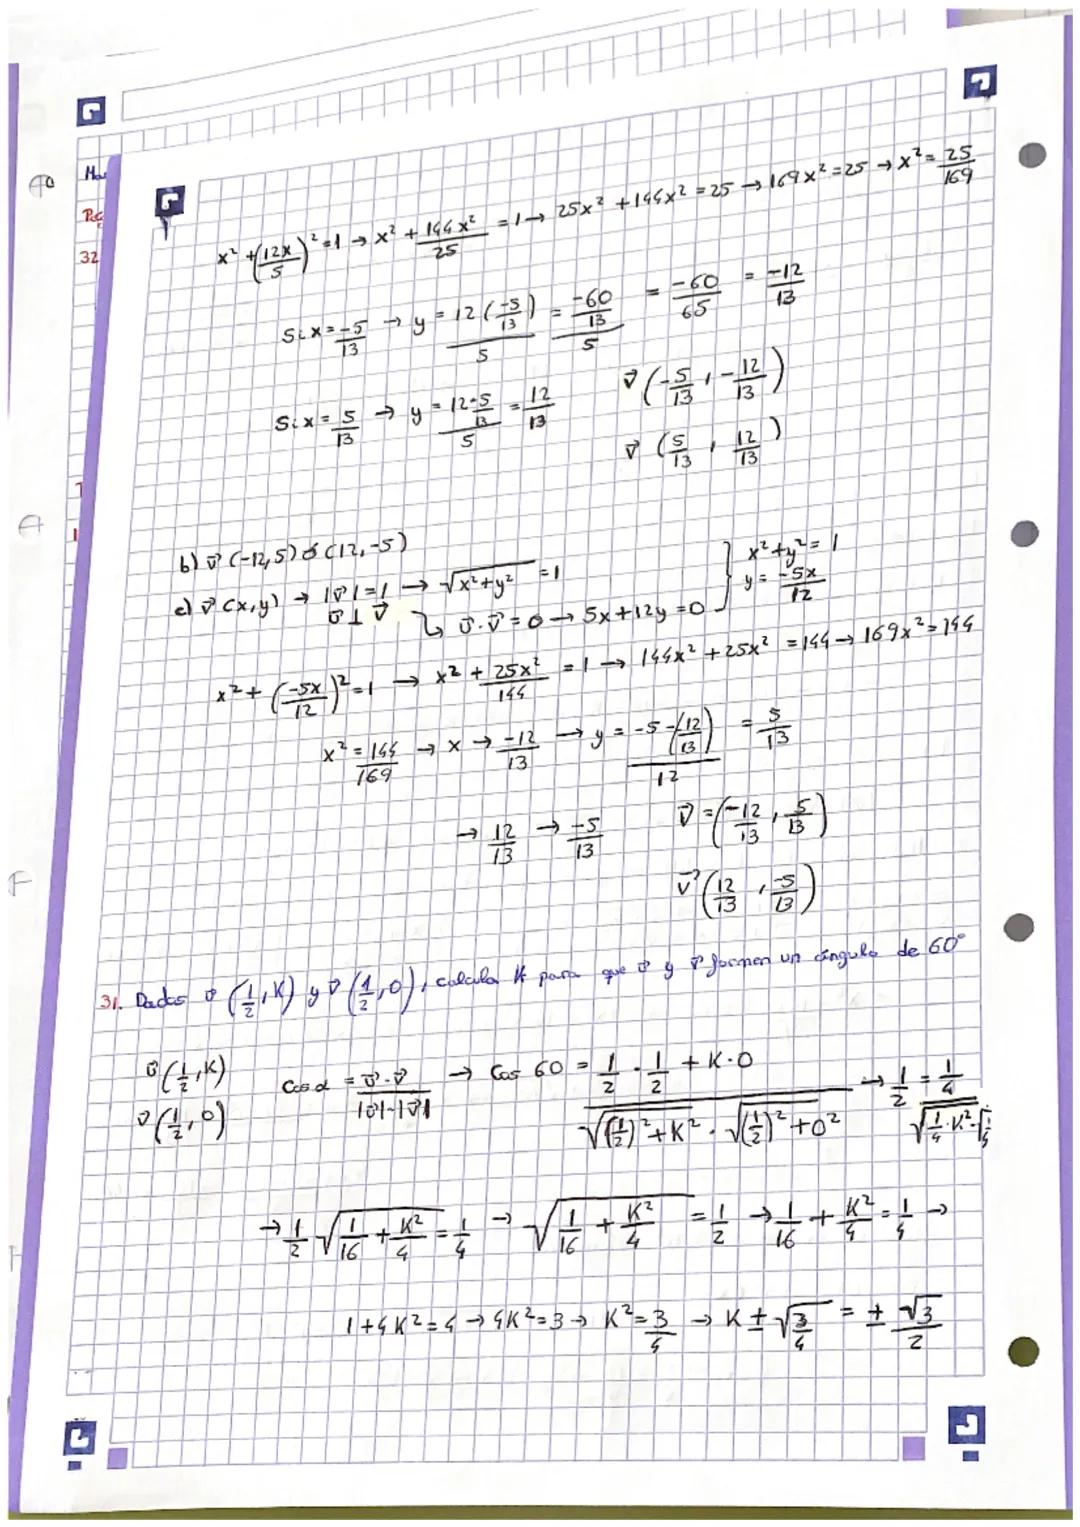 Po
32
x² + (12x/5)² = 1 → x² + 144x²/25 = 1 → 25x² + 144x² = 25 → 169x² = 25 → x² = 25/169
Si x = -5/13 → y = 12(-5/13)/5 = (-60/13)/5 = -60/65 = -12/13
v⃗ (-5/13, -12/13)
Si x = 5/13 → y = (12·5/13)/5 = 12/13
v⃗ (5/13, 12/13)
b) v⃗ (-12,5) ó (12,-5)
c) v⃗ (x,y) → |v⃗| = 1 → √x²+y² = 1
u⃗ ⊥ v⃗ ↳ u⃗·v⃗ = 0 → 5x + 12y = 0 } x² + y² = 1
y = -5x/12
x² + (-5x/12)² = 1 → x² + 25x²/144 = 1 → 144x² + 25x² = 144 → 169x² = 144
x² = 144/169 → x → -12/13 → y = -5·(-12/13)/12 = 5/13
→ 12/13 → -5/13
v⃗ = (-12/13, 5/13)
v⃗ (12/13, -5/13)
31. Dados u⃗ (1/2, K) y v⃗ (1/2, 0), calcula K para que u⃗ y v⃗ formen un ángulo de 60°
u⃗ (1/2, K)
v⃗ (1/2, 0)
Cos α = u⃗·v⃗/|u⃗|·|v⃗| → Cos 60 = (1/2 · 1/2 + K·0)/(√(1/2)²+K² · √(1/2)²+0²) → 1/2 = (1/4)/(√1/4·K²·√1/4)
→ 1/2 √1/16 + K²/4 = 1/4 → √1/16 + K²/4 = 1/2 → 1/16 + K²/4 = 1/4 →
1+4K² = 4 → 4K² = 3 → K² = 3/4 → K ± √3/4 = ± √3/2